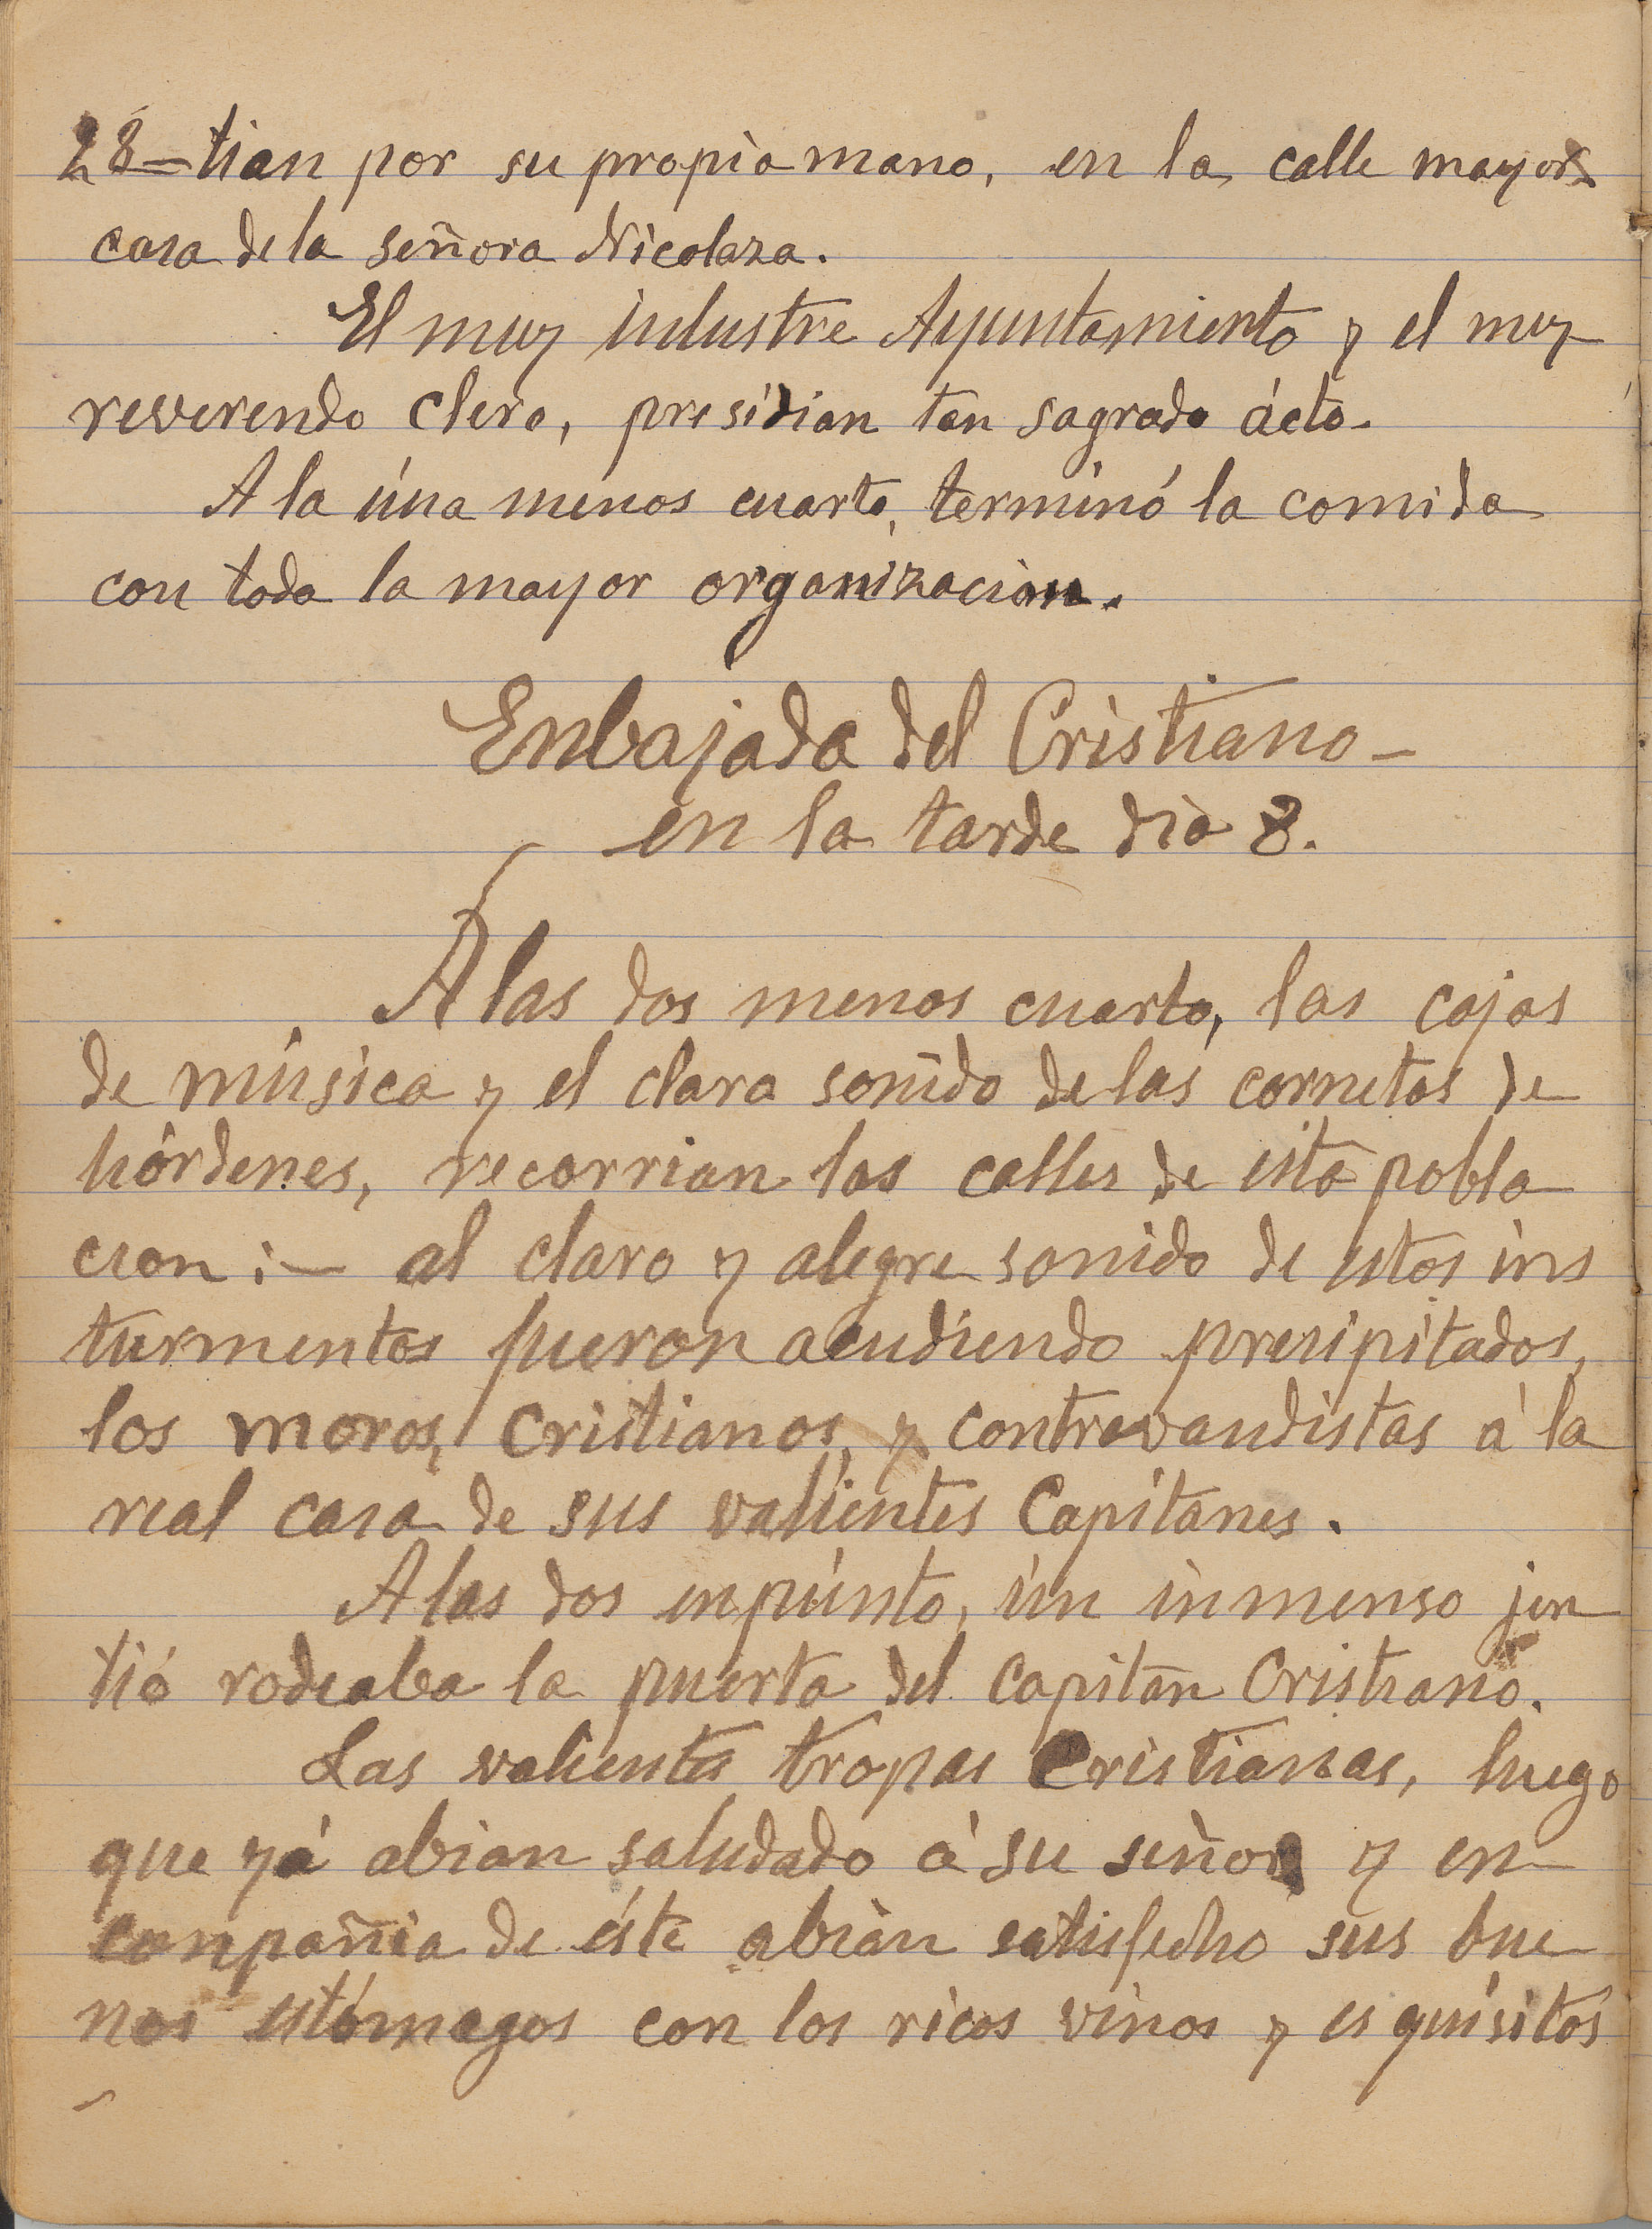 28=tian por su propia mano, en la calle mayor
casa de la señora Nicolaza.
El muy inlustre Ayuntamiento y el muy
reverendo clero, presidian tan sagrado ácto.
A la úna menos cuarto, terminó la comida
con toda la mayor organizacion.
Enbajada del Cristiano-
en la tarde dia 8.
A las dos menos cuarto, las cajas
de música y el claro sonido de las cornetas de
hórdenes, recorrian las calles de esta pobla
cion:- al claro y alegre sonido de estos ins
turmentos fueron acudiendo presipitados,
los moros, Cristianos, y contravandistas á la
real casa de sus valientes Capitanes.
A las dos enpúnto, ún inmenso jen
tió rodeaba la puerta del Capitan Cristiano.
Las valientes tropas Cristianas, luego
que yá abian saludado á su señor y en
conpañia de éste abian satisfecho sus bue
nos estómagos con los ricos vinos y esquisitos